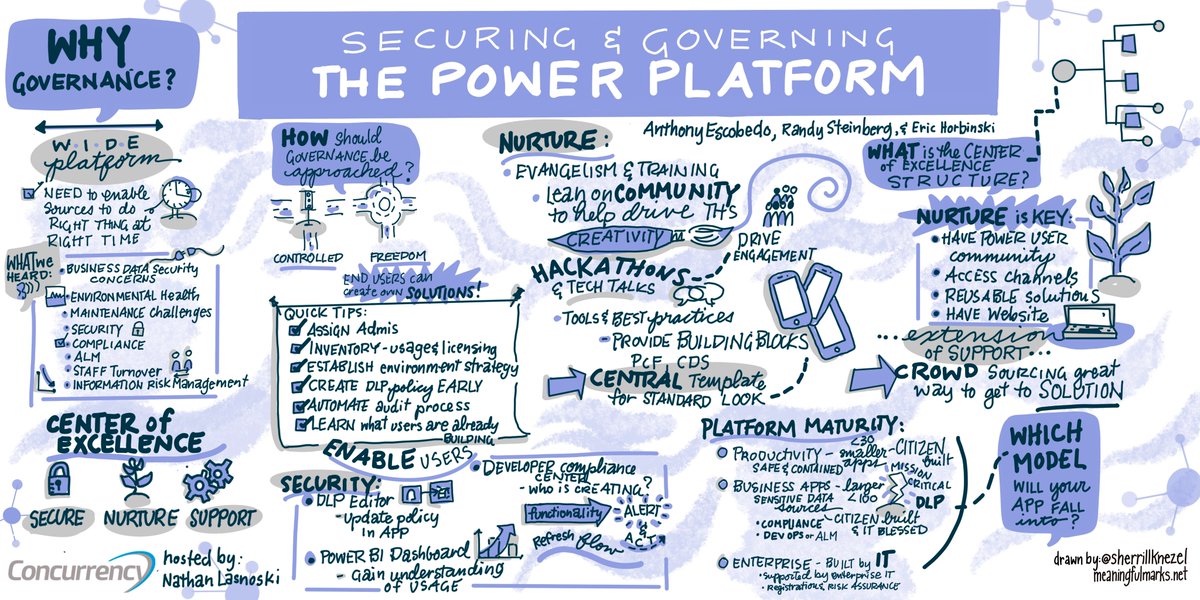 WHY
GOVERNANCE?
SECURING & GOVERNING
THE POWER PLATFORM
Anthony Escobedo, Randy Steinberg, & Eric Horbinski
WIDE
platform
NEED to enable
sources to do
RIGHT THING at
RIGHT TIME
WHAT we
HEARD:
• BUSINESS DATA Security
CONCERNS
• ENVIRONMENTAL Health
• MAINTENANCE Challenges
• SECURITY
• COMPLIANCE
• ALM
• STAFF Turnover
• INFORMATION Risk Management
CENTER of
EXCELLENCE
SECURE
NURTURE
SUPPORT
Concurrency
hosted by:
Nathan Lasnoski
HOW should
GOVERNANCE be
approached?
CONTROLLED
FREEDOM
END USERS can
create own SOLUTIONS!
QUICK TIPS:
ASSIGN Admis
INVENTORY - usage & licensing
ESTABLISH environment strategy
CREATE DLP policy EARLY
AUTOMATE audit process
LEARN what users are already
BUILDING
ENABLE USERS
SECURITY:
• DLP Editor
- Update policy
in APP
• POWER BI Dashboard
- Gain understanding
of USAGE
• Developer compliance
CENTER
- who is CREATING?
functionality
ALERT
&
ACT
Refresh flow
NURTURE:
• EVANGELISM & TRAINING
lean on COMMUNITY
to help drive THS
CREATIVITY
DRIVE
ENGAGEMENT
HACKATHONS
& TECH TALKS
• TOOLS & BEST practices
- PROVIDE BUILDING BLOCKS
PCF, CDS
CENTRAL Template
for STANDARD LOOK
WHAT is the CENTER
OF EXCELLENCE
STRUCTURE?
NURTURE is KEY:
• HAVE POWER USER
community
• ACCESS channels
• REUSABLE solutions
• HAVE Website
...extension
of SUPPORT...
CROWD SOURCING great
way to get to SOLUTION
PLATFORM MATURITY:
PRODUCTIVITY - smaller apps <30
SAFE & CONTAINED
CITIZEN
built
MISSION
CRITICAL
DLP
BUSINESS APPS - larger
<100
SENSITIVE DATA
sources
• COMPLIANCE
• DEVOPS or ALM
CITIZEN built
& IT BLESSED
ENTERPRISE - BUILT by IT
• Supported by enterprise IT
• Registrations, RISK ASSURANCE
WHICH
MODEL
WILL your
APP FALL
into?
drawn by: @sherrillknezel
meaningfulmarks.net